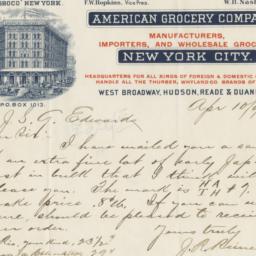 GROCO" NEW YORK.
F.W. Hopkins, Vice Pres.
W. H. Nash
AMERICAN GROCERY COMPA
MANUFACTURERS,
IMPORTERS, AND WHOLESALE GROC
NEW YORK CITY.
HEADQUARTERS FOR ALL KINDS OF FOREIGN & DOMESTIC
HANDLE ALL THE THURBER, WHYLAND CO. BRANDS OF
WEST BROADWAY, HUDSON, READE & DUAN
P.O. BOX 1013.
Apr 10/
J. S. G. Edwards
Sir:
I have mailed you a sa
an extra fine lot of early Jap
st in bulk that I think will
lease you. The mark is
ake price. If you can u
ure, should be pleased to recei
ur order.
Yours truly
J. R.